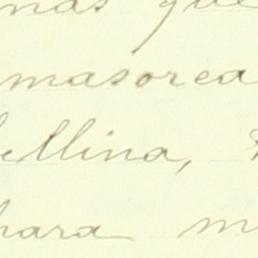 mas que
masorca
ellina,
para m